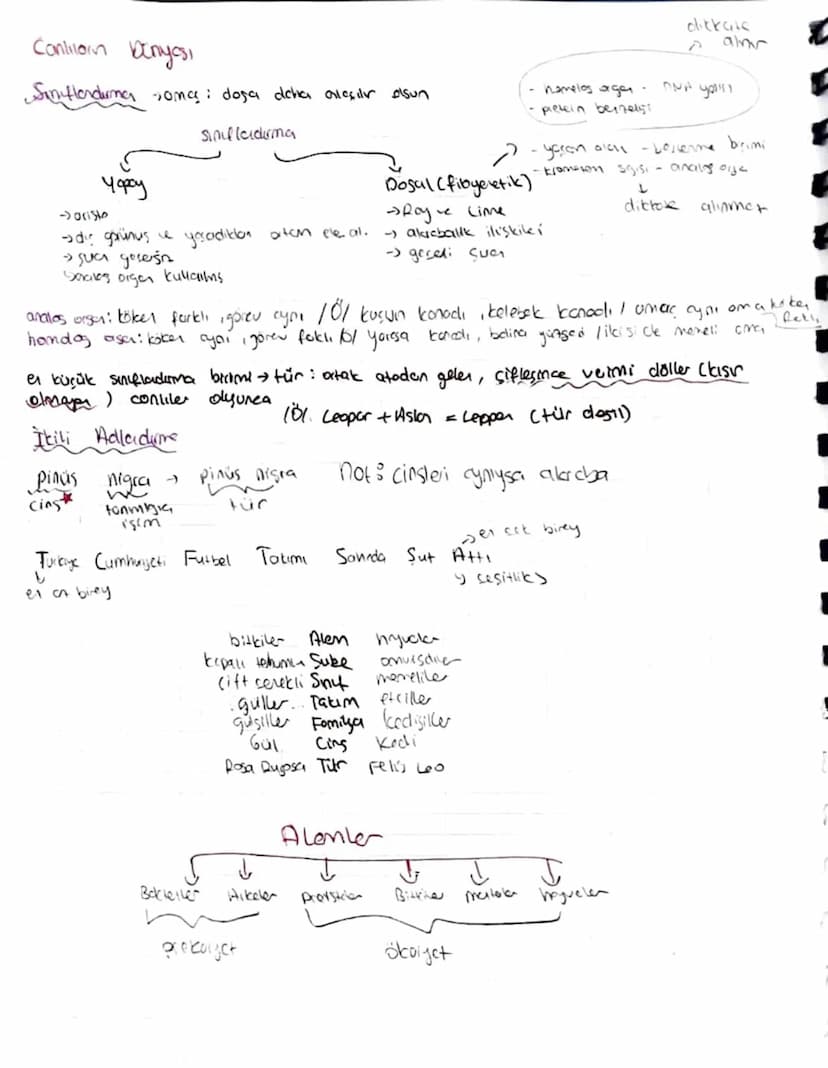 dikkate
alınır
Canlıların Dünyası
Sınıflandırma → amaç : doğa daha anlaşılır olsun
- homolog organ - DNA yapısı
- protein benzerliği
sınıflandırma
Yapay
Doğal (filogenetik)
- yaşam alanı - beslenme birimi
- kromozom sayısı - analog organ
dikkate alınmaz
→ aristo
→ Ray ve Linne
→ dış görünüş ve yaşadıkları ortam ele al.
→ akrabalık ilişkileri
→ şuan geçersiz
→ geçerli şuan
analog organ kullanılmış
analog organ : köken farklı , görev aynı /Ö/ kuşun kanadı , kelebek kanadı / amaç aynı ama köken farklı
homolog organ : köken aynı , görev farklı /ö/ yarasa kanadı , balina yüzgeci / ikiside memeli ama
en küçük sınıflandırma birimi → tür : ortak atadan gelen , çiftleşince verimli döller (kısır
olmayan ) canlılar oluşunca
/Ö/. Leopar + Aslan = Leopon (tür değil)
İkili Adlandırma
pinus nigra → pinus nigra Not : cinsleri aynıysa akraba
cins tanımlayıcı isim tür
en çok birey
Türkiye Cumhuriyeti Futbol Takımı Sahada Şut Attı
en az birey
çeşitlilik
bitkiler Alem hayvanlar
kapalı tohumlu Şube omurgalılar
çift çenekli Sınıf memeliler
güller Takım etçiller
gülgiller Familya kedigiller
Gül Cins Kedi
Rosa Rugosa Tür Felis Leo
Alemler
Bakteriler Arkeler protistler Bitkiler mantarlar hayvanlar
prokaryot
ökaryot